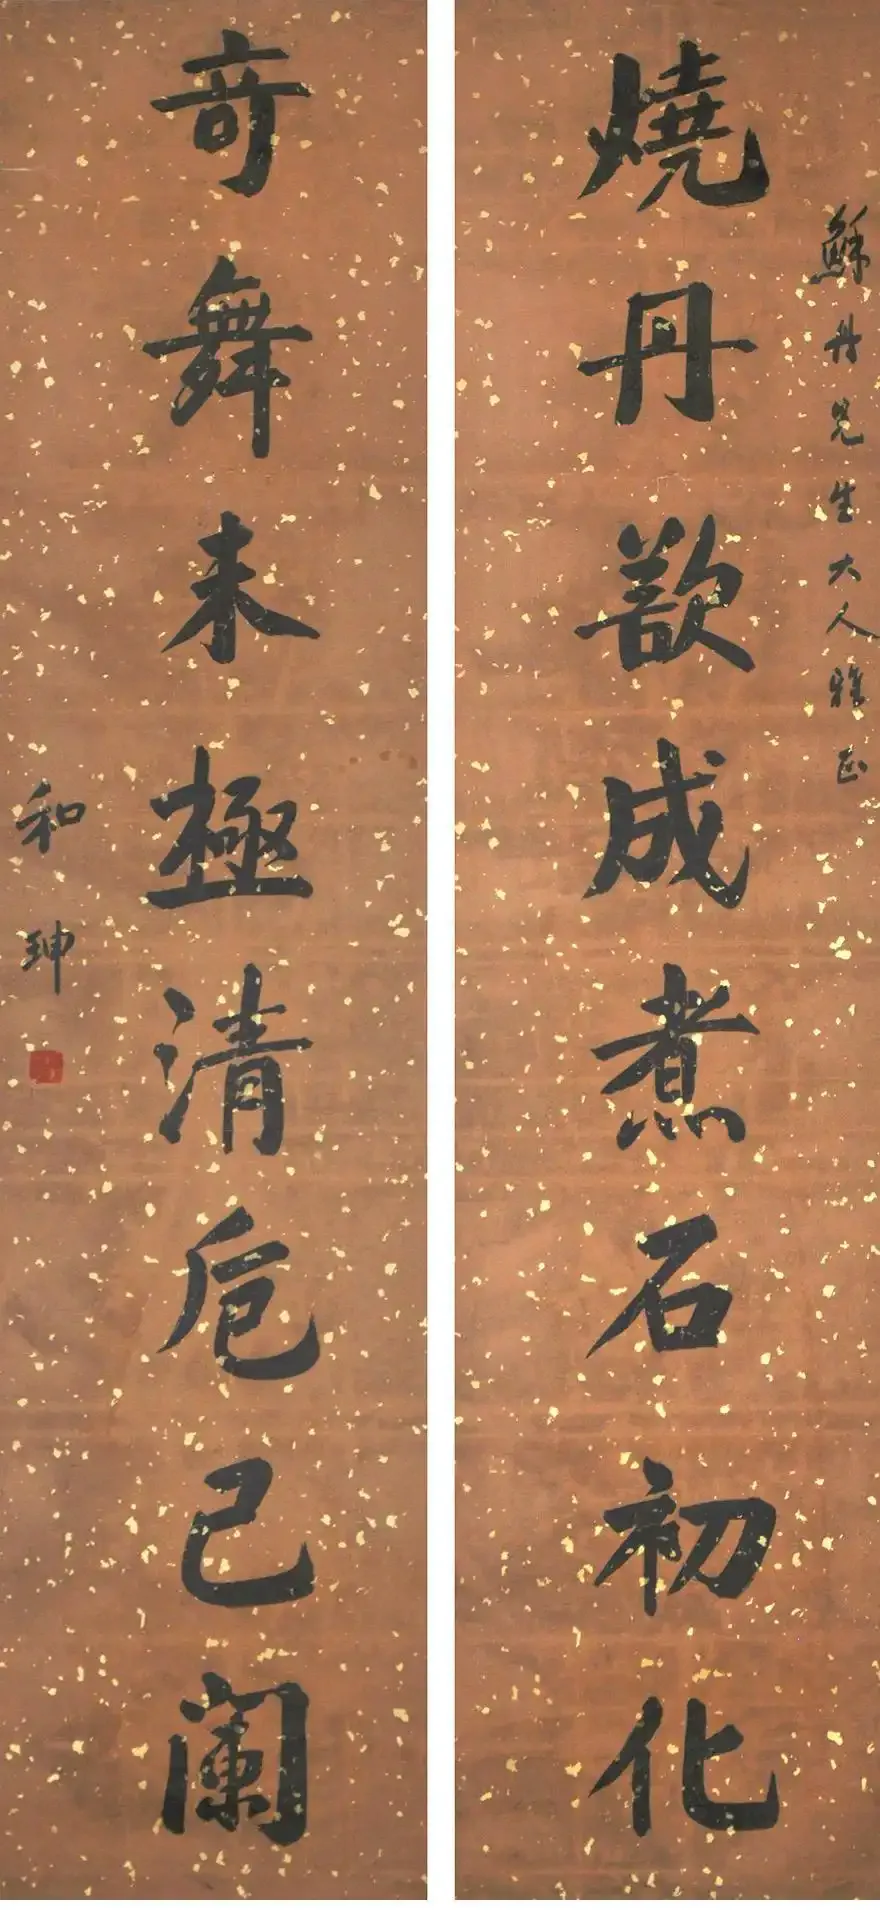 穌丹先生大人雅正
燒丹歆成煮石初化
奇舞未極清卮已闌
和珅